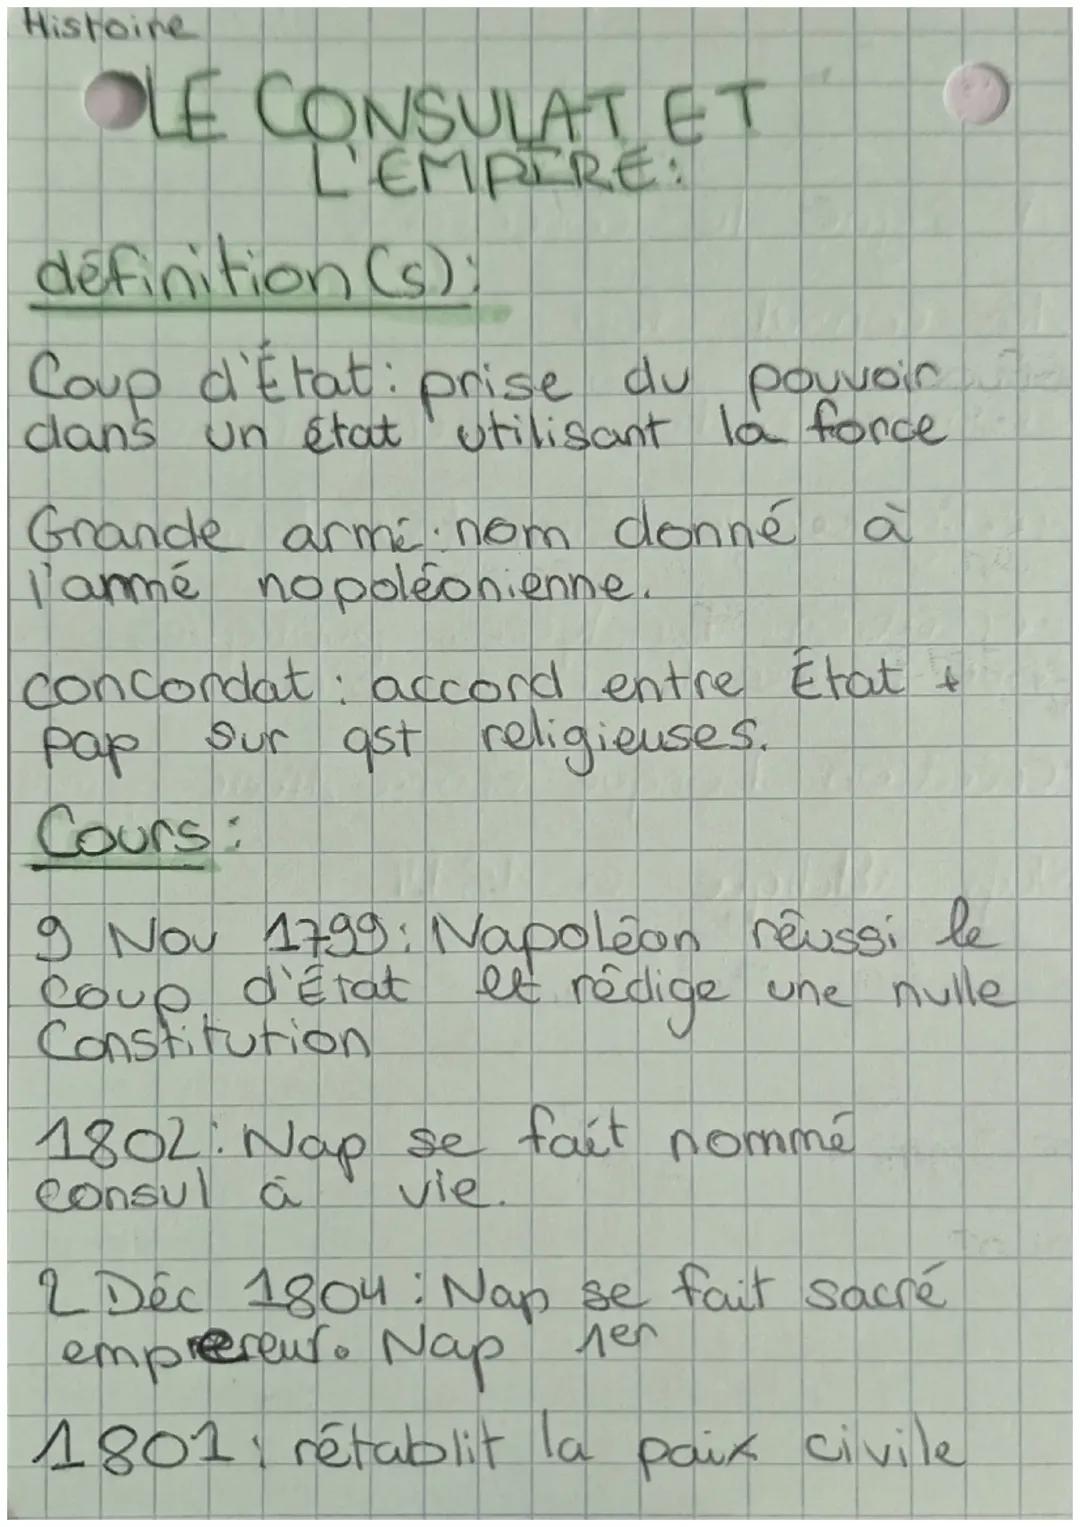 Histoire
LE CONSULAT ET
L'EMPIRE:
définition(s):
Coup d'État: prise du pouvoir
dans un état utilisant la force
Grande armé: nom donné à
l'armé nopoléonienne.
concordat: accord entre État +
pap sur qst religieuses.
Cours:
9 Nov 1799: Napoléon réussi le
coup d'État et rédige une nulle
Constitution
1802: Nap se fait nommé
consul à vie.
2 Déc 1804: Nap se fait sacré
emprereur. Nap 1er
1801: rétablit la paix civile